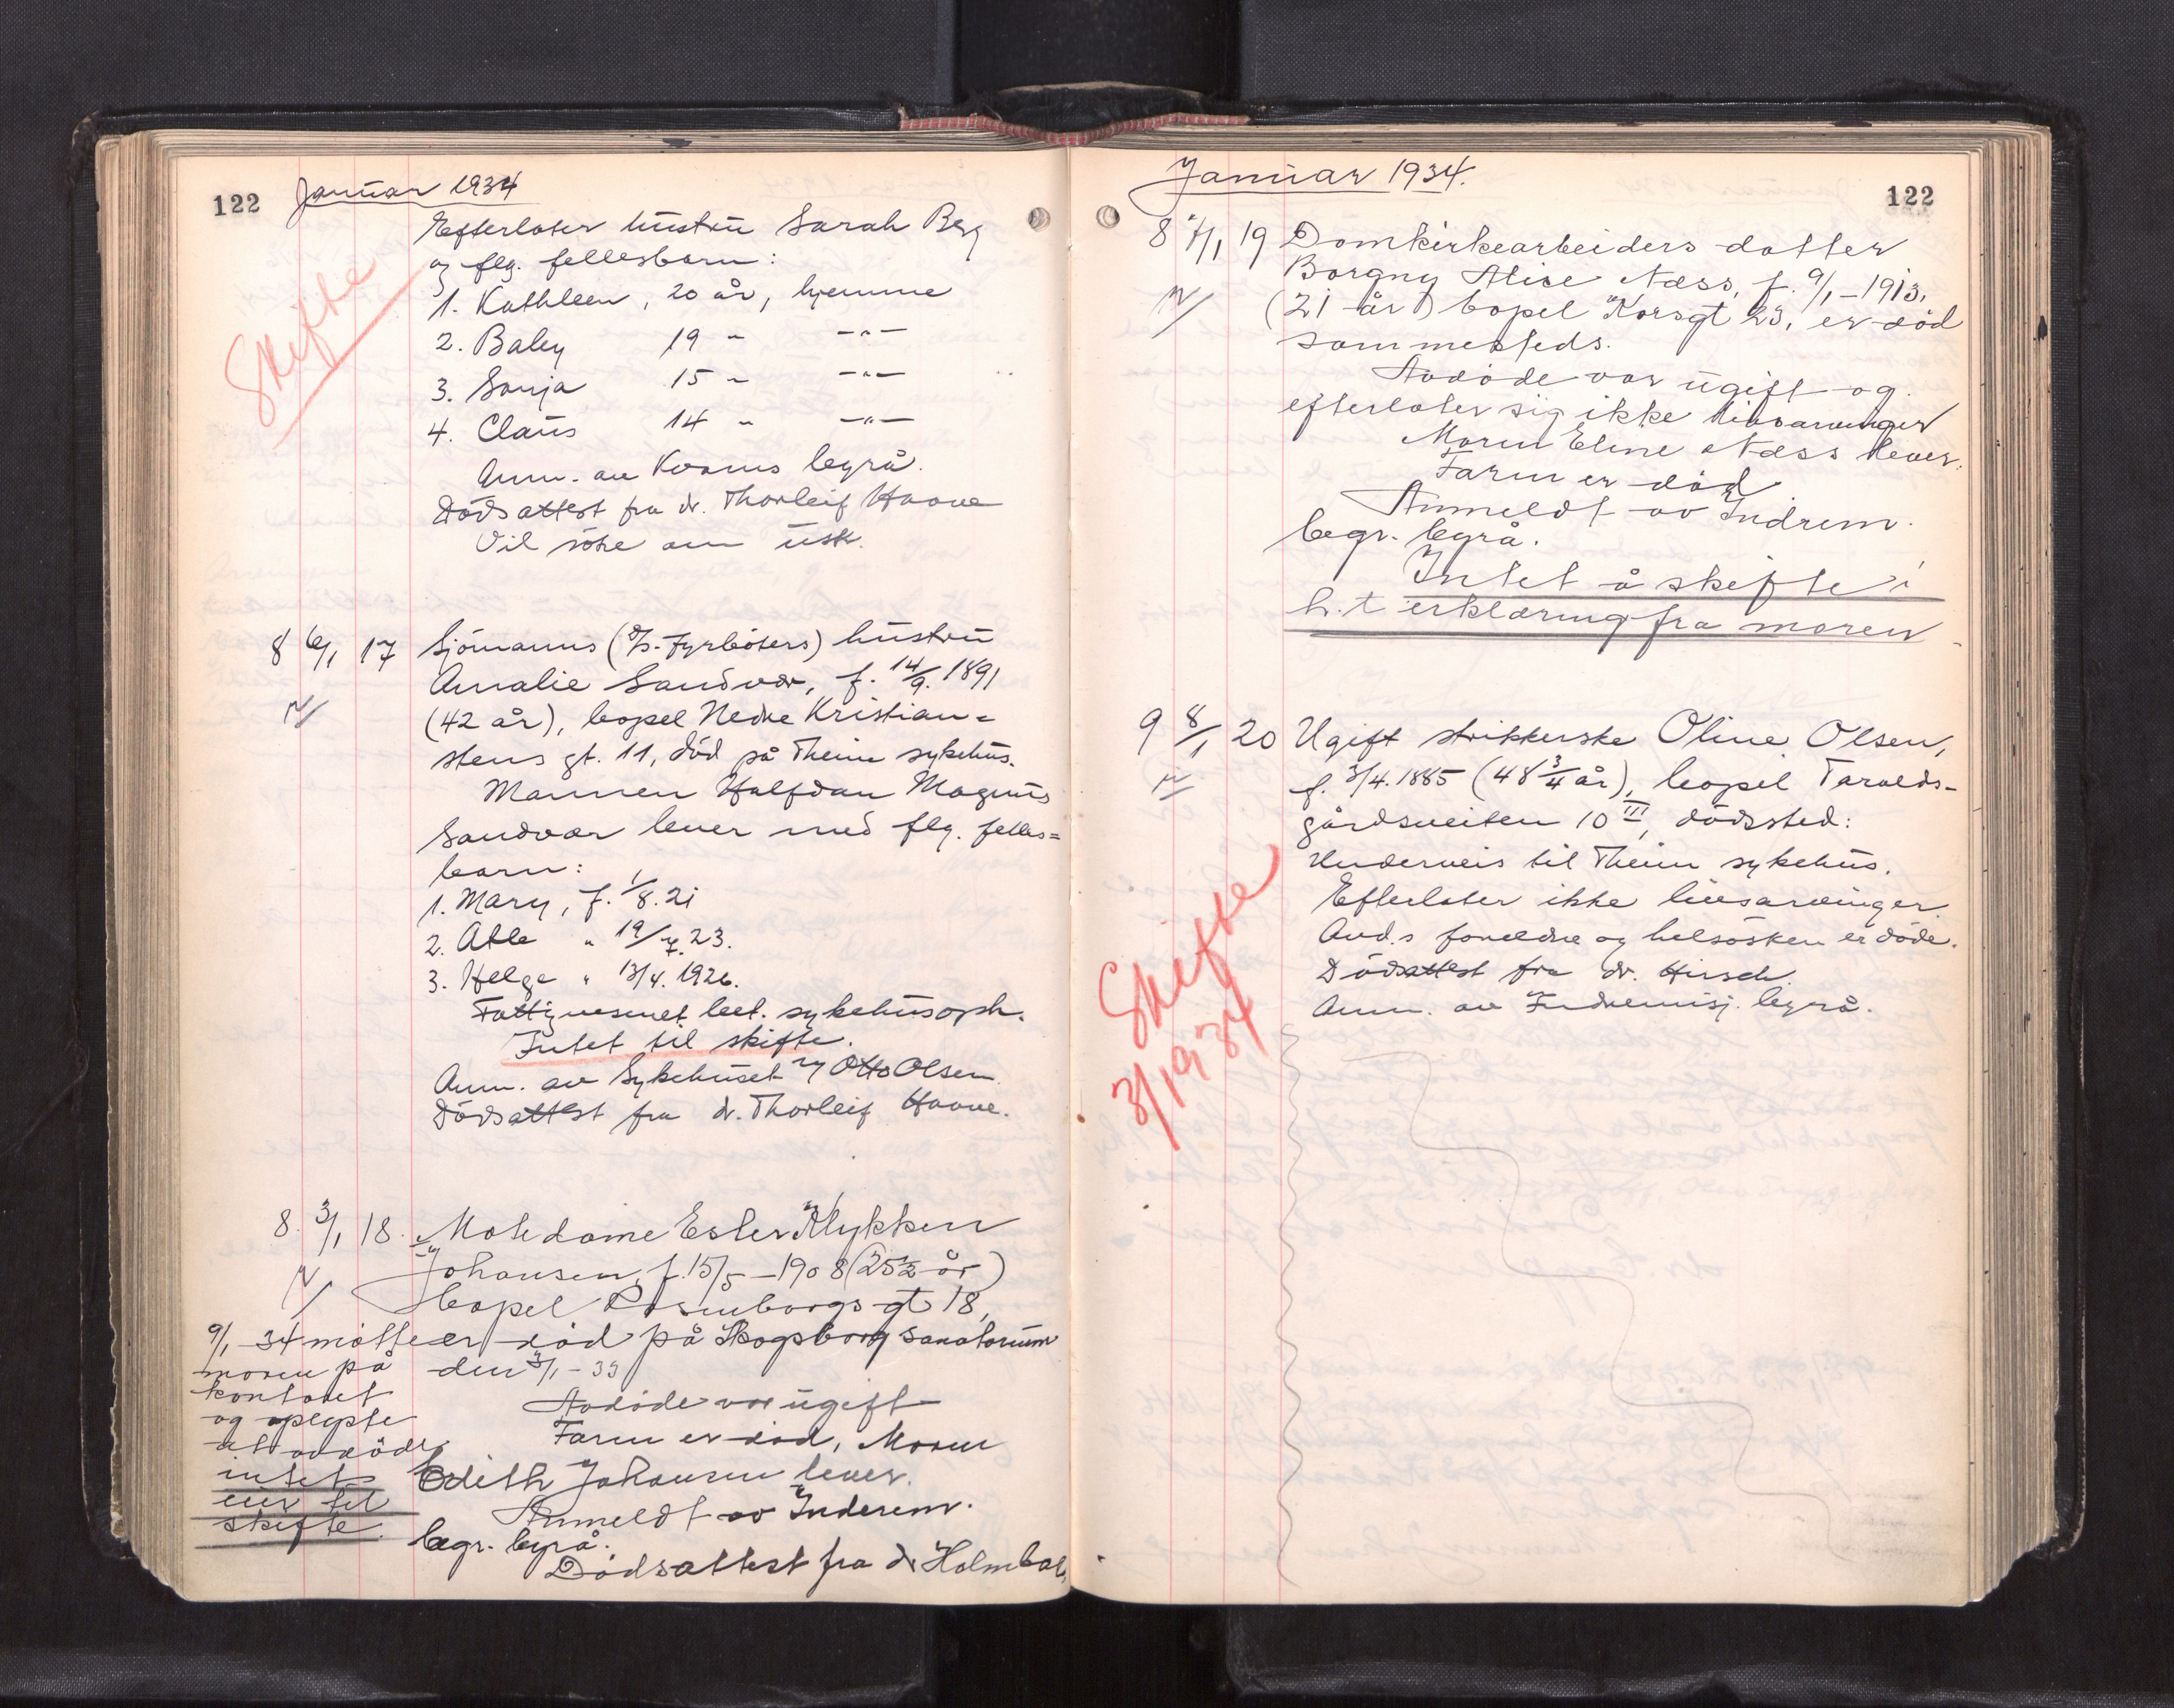 122 Januar 1934
Efterlater hustru Sarah Berg
og flg. fellesbarn:
1. Kathleen, 20 år, hjemme
2. Baley 19 " —"—
3. Sonja 15 " —"—
4. Claus 14 " —"—
Anm. av Kvams byrå.
Dödsattest fra dr. Thorleif Haave
Vil söke om usk.
Skifte
8 6/1 17 Sjömanns (D/s. Fyrböters) hustru
Amalie Sandvær, f. 14/9. 1891
(42 år), bopel Nedre Kristian=
stens gt. 11, död på Theim sykehus.
Mannen Halfdan Magnus
Sandvær lever med flg. felles=
barn:
1. Mary, f. 1/8. 21
2. Atle " 19/7. 23.
3. Helge " 13/4. 1926.
Fattigvesenet bet. sykehusoph.
Intet til skifte.
Anm. av Sykehuset v/ Otto Olsen.
Dödsattest fra dr. Thorleif Haave.
8. 3/1 18. Motedame Ester Klykken
Johansen, f. 15/5 – 1908 (25 1/2 år)
bopel Rosenborgs gt 18,
er död på Skogsborg Sanatorium
den 3/1 – 33
Avdöde var ugift
Faren er död, Moren
Edith Johansen lever.
Anmeldt av Indrem.
begr. byrå.
Dödsattest fra dr Holmboe,
9/1 – 34 møtte
moren på
kontoret
og oplyste
at avdöde
intet
eier til
skifte.
Januar 1934. 122
8 7/1 19 Domkirkearbeiders datter
Borgny Alice Næss, f. 9/1 – 1913,
(21 år) bopel Korsgt 23, er död
sammesteds.
Avdöde var ugift og
efterlater sig ikke livsarvinger
Moren Eline Næss lever.
Faren er död
Anmeldt av Indrem.
begr. byrå.
Intet å skifte i
h.t erklæring fra moren
9 8/1 20 Ugift strikkerske Oline Olsen,
f. 3/4. 1885 (48 3/4 år), bopel Taralds-
gårdsveiten 10 III, dödssted:
Underveis til Theim sykehus.
Efterlater ikke livsarvinger.
Avd.s foreldre og helsösken er döde.
Dödsattest fra dr. Hirsch.
Anm. av Indremisj. byrå.
Skifte
3/19 34